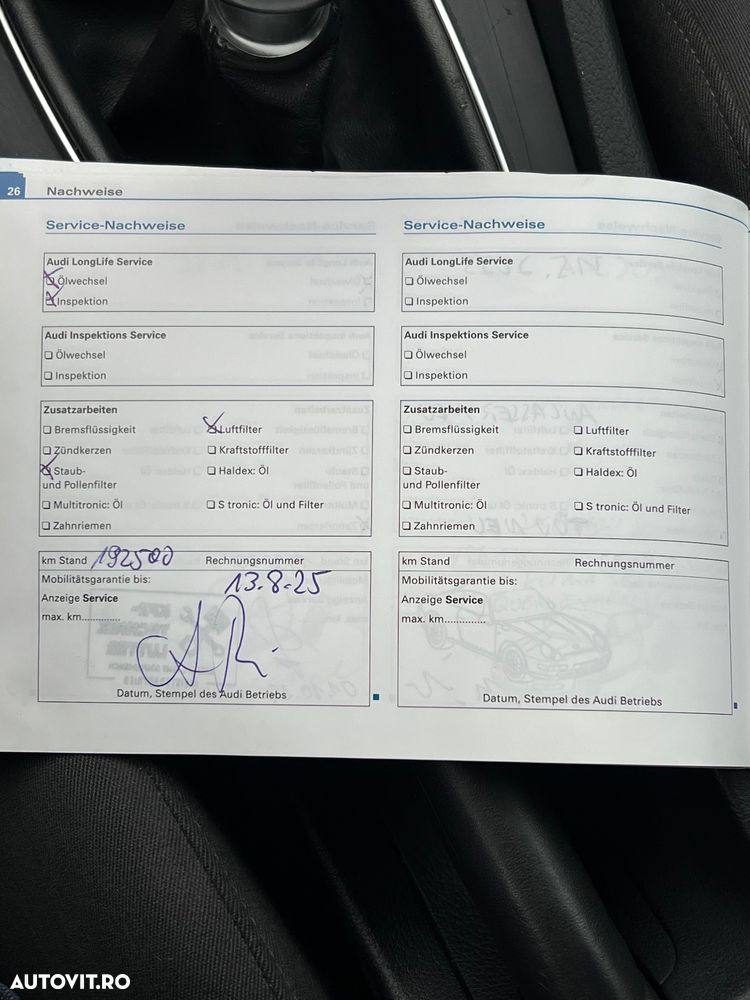 26 Nachweise
Service-Nachweise
Audi LongLife Service
Ölwechsel
Inspektion
Audi Inspektions Service
Ölwechsel
Inspektion
Zusatzarbeiten
Bremsflüssigkeit Luftfilter
Zündkerzen Kraftstofffilter
Staub- Haldex: Öl
und Pollenfilter
Multitronic: Öl S tronic: Öl und Filter
Zahnriemen
km Stand 192500 Rechnungsnummer
Mobilitätsgarantie bis: 13.8.25
Anzeige Service
max. km..............
Datum, Stempel des Audi Betriebs
Service-Nachweise
Audi LongLife Service
Ölwechsel
Inspektion
Audi Inspektions Service
Ölwechsel
Inspektion
Zusatzarbeiten
Bremsflüssigkeit Luftfilter
Zündkerzen Kraftstofffilter
Staub- Haldex: Öl
und Pollenfilter
Multitronic: Öl S tronic: Öl und Filter
Zahnriemen
km Stand Rechnungsnummer
Mobilitätsgarantie bis:
Anzeige Service
max. km..............
Datum, Stempel des Audi Betriebs
AUTOVIT.RO